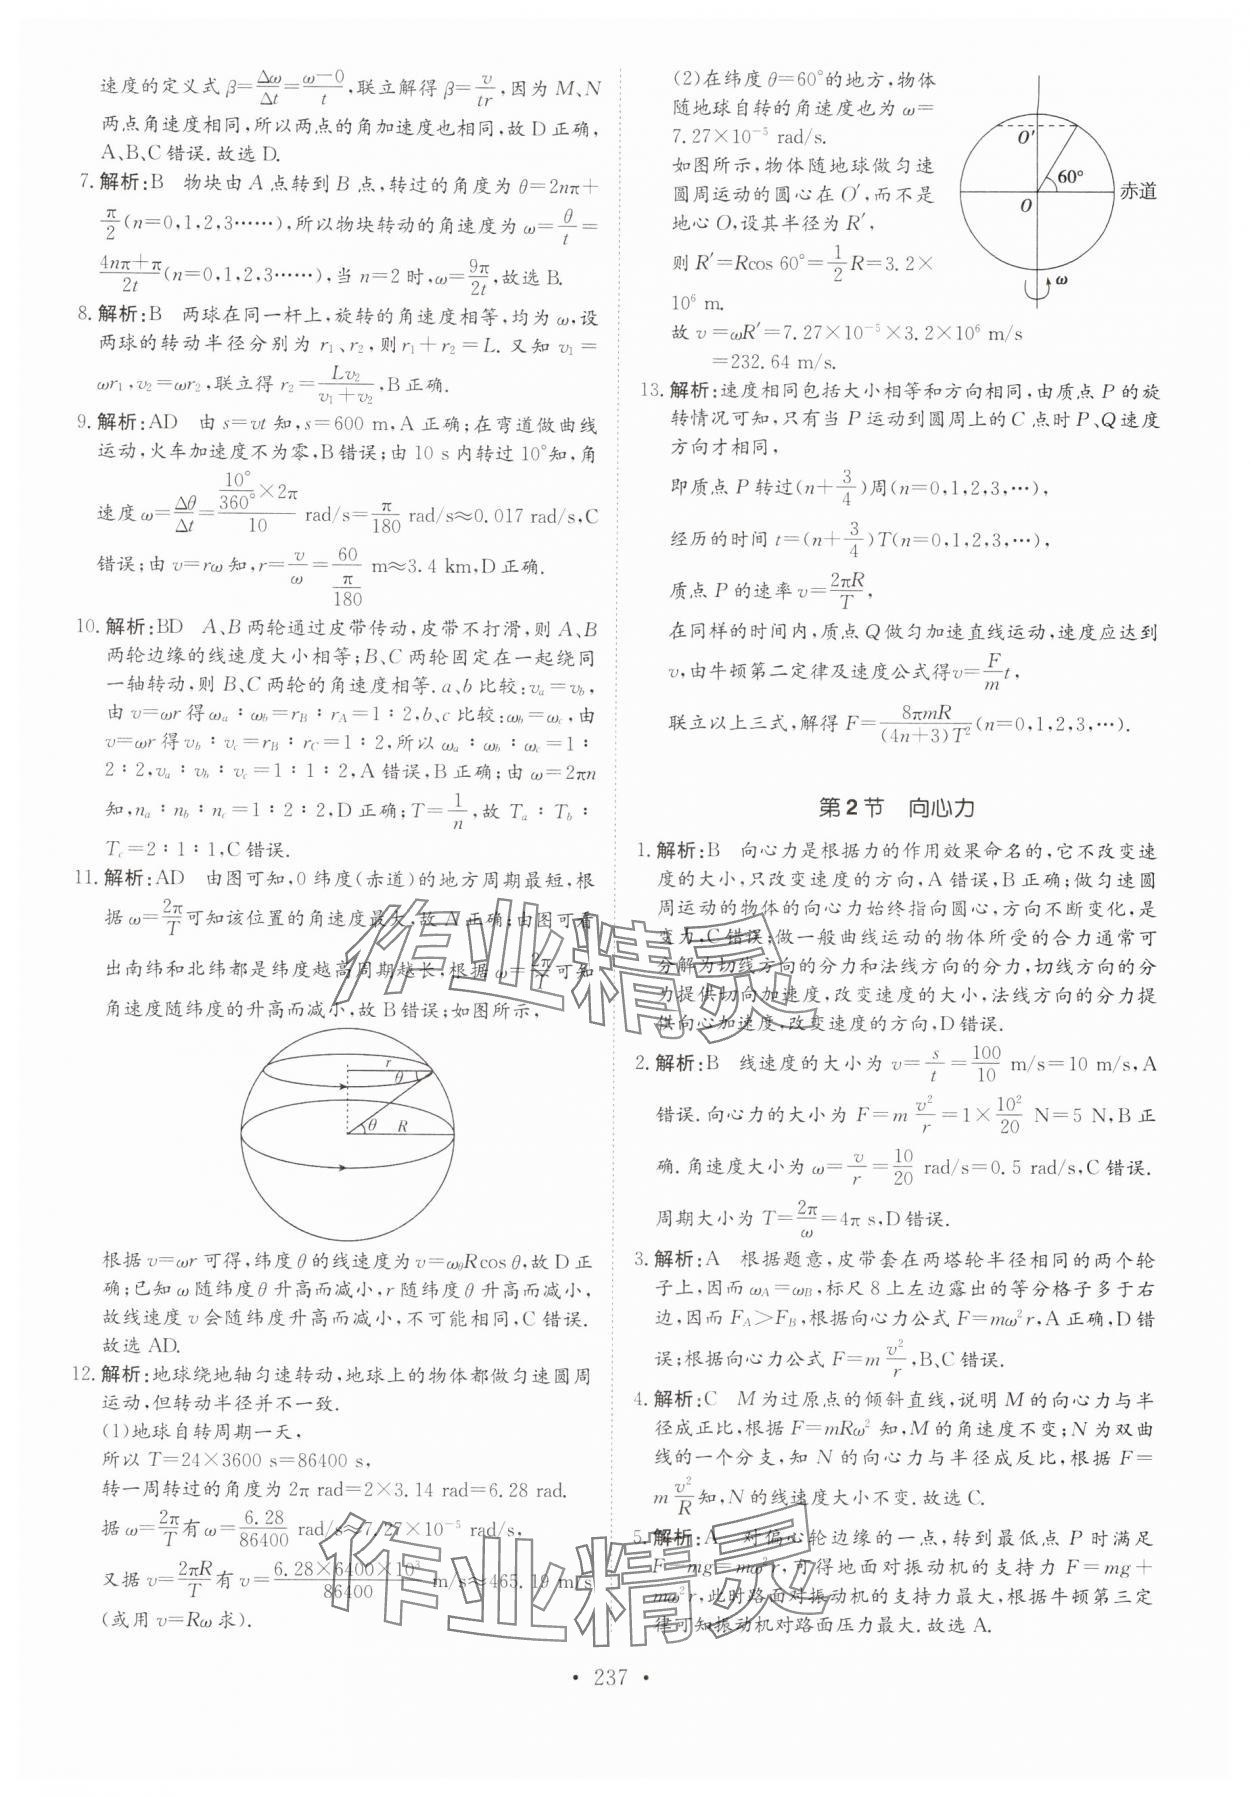 速度的定义式 β=Δω/Δt=(ω−0)/t,联立解得 β=v/(tr),因为 M、N
两点角速度相同,所以两点的角加速度也相同,故 D 正确,
A、B、C 错误.故选 D.
7. 解析:B 物块由 A 点转到 B 点,转过的角度为 θ=2nπ+
π/2(n=0,1,2,3……),所以物块转动的角速度为 ω=θ/t=
(4nπ+π)/2t(n=0,1,2,3……),当 n=2 时,ω=9π/2t,故选 B.
8. 解析:B 两球在同一杆上,旋转的角速度相等,均为 ω,设
两球的转动半径分别为 r₁、r₂,则 r₁+r₂=L. 又知 v₁=
ωr₁,v₂=ωr₂,联立得 r₂=Lv₂/(v₁+v₂),B 正确.
9. 解析:AD 由 s=vt 知,s=600 m,A 正确;在弯道做曲线
运动,火车加速度不为零,B 错误;由 10 s 内转过 10°知,角
速度 ω=Δθ/Δt=(10°/360°×2π)/10 rad/s=π/180 rad/s≈0.017 rad/s,C
错误;由 v=rω 知,r=v/ω=60/(π/180) m≈3.4 km,D 正确.
10. 解析:BD A、B 两轮通过皮带传动,皮带不打滑,则 A、B
两轮边缘的线速度大小相等;B、C 两轮固定在一起绕同
一轴转动,则 B、C 两轮的角速度相等.a、b 比较:vₐ=v_b,
由 v=ωr 得 ωₐ∶ω_b=r_B∶r_A=1∶2,b、c 比较:ω_b=ω_c,由
v=ωr 得 v_b∶v_c=r_B∶r_C=1∶2,所以 ωₐ∶ω_b∶ω_c=1∶
2∶2,vₐ∶v_b∶v_c=1∶1∶2,A 错误,B 正确;由 ω=2πn
知,nₐ∶n_b∶n_c=1∶2∶2,D 正确;T=1/n,故 Tₐ∶T_b∶
T_c=2∶1∶1,C 错误.
11. 解析:AD 由图可知,0 纬度(赤道)的地方周期最短,根
据 ω=2π/T可知该位置的角速度最大,故 A 正确;由图可看
出南纬和北纬都是纬度越高周期越长,根据 ω=2π/T可知
角速度随纬度的升高而减小,故 B 错误;如图所示,
r
θ
θ R
根据 v=ωr 可得,纬度 θ 的线速度为 v=ω_θRcos θ,故 D 正
确;已知 ω 随纬度 θ 升高而减小,r 随纬度 θ 升高而减小,
故线速度 v 会随纬度升高而减小,不可能相同,C 错误.
故选 AD.
12. 解析:地球绕地轴匀速转动,地球上的物体都做匀速圆周
运动,但转动半径并不一致.
(1)地球自转周期一天,
所以 T=24×3600 s=86400 s,
转一周转过的角度为 2π rad=2×3.14 rad=6.28 rad.
据 ω=2π/T有 ω=6.28/86400 rad/s≈7.27×10⁻⁵ rad/s,
又据 v=2πR/T有 v=(6.28×6400×10³)/86400 m/s≈465.19 m/s
(或用 v=Rω 求).
(2)在纬度 θ=60°的地方,物体
随地球自转的角速度也为 ω=
7.27×10⁻⁵ rad/s.
如图所示,物体随地球做匀速
圆周运动的圆心在 O′,而不是
地心 O,设其半径为 R′,
则 R′=Rcos 60°=1/2R=3.2×
10⁶ m.
故 v=ωR′=7.27×10⁻⁵×3.2×10⁶ m/s
=232.64 m/s.
O′
60°
O
赤道
ω
13. 解析:速度相同包括大小相等和方向相同,由质点 P 的旋
转情况可知,只有当 P 运动到圆周上的 C 点时 P、Q 速度
方向才相同,
即质点 P 转过(n+3/4)周(n=0,1,2,3,…),
经历的时间 t=(n+3/4)T(n=0,1,2,3,…),
质点 P 的速率 v=2πR/T,
在同样的时间内,质点 Q 做匀加速直线运动,速度应达到
v,由牛顿第二定律及速度公式得v=F/m t,
联立以上三式,解得 F=8πmR/((4n+3)T²)(n=0,1,2,3,…).
第 2 节 向心力
1. 解析:B 向心力是根据力的作用效果命名的,它不改变速
度的大小,只改变速度的方向,A 错误,B 正确;做匀速圆
周运动的物体的向心力始终指向圆心,方向不断变化,是
变力,C 错误;做一般曲线运动的物体所受的合力通常可
分解为切线方向的分力和法线方向的分力,切线方向的分
力提供切向加速度,改变速度的大小,法线方向的分力提
供向心加速度,改变速度的方向,D 错误.
2. 解析:B 线速度的大小为 v=s/t=100/10 m/s=10 m/s,A
错误.向心力的大小为 F=m v²/r=1×10²/20 N=5 N,B 正
确.角速度大小为 ω=v/r=10/20 rad/s=0.5 rad/s,C 错误.
周期大小为 T=2π/ω=4π s,D 错误.
3. 解析:A 根据题意,皮带套在两塔轮半径相同的两个轮
子上,因而 ω_A=ω_B,标尺 8 上左边露出的等分格子多于右
边,因而 F_A>F_B,根据向心力公式 F=mω²r,A 正确,D 错
误;根据向心力公式 F=m v²/r,B、C 错误.
4. 解析:C M 为过原点的倾斜直线,说明 M 的向心力与半
径成正比,根据 F=mRω² 知,M 的角速度不变;N 为双曲
线的一个分支,知 N 的向心力与半径成反比,根据 F=
m v²/R知,N 的线速度大小不变.故选 C.
5. 解析:A 对偏心轮边缘的一点,转到最低点 P 时满足
F−mg=mω²r,可得地面对振动机的支持力 F=mg+
mω²r,此时路面对振动机的支持力最大,根据牛顿第三定
律可知振动机对路面压力最大.故选 A.
作业精灵
作业精灵
· 237 ·